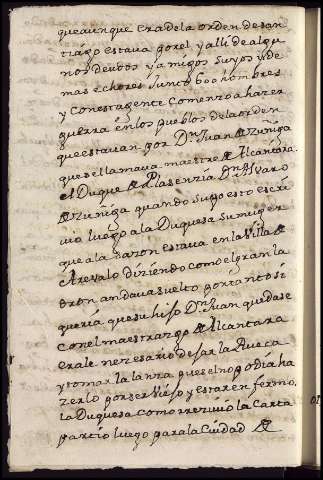 que aunque era de la orden de san
tiago estava por el y alli de algu
nos deudos y amigos suyos y de
mas echores Junto 600 hombres
y con esta gente comenzo a hazer
guerra en los pueblos de la orden
que estavan por Dn Juan de Zuñiga
que se llamava maestre de Alcantara.
el Duque de Plasenzia Dn Alvaro
de Zuñiga quando supo esto escri
vio luego a la Duquesa su muger
que a la sazon estava en la Villa de
Arevalo diziendo como el gran la
dron andava suelto por tanto si
queria que su hijo Dn Juan quedase
con el maestrazgo de Alcantara
era le nezesario dejar la Rueca
y tomar la lanza que el no podia ha
zerlo por ser viejo y estar enfermo.
la Duquesa como rezivio la Carta
partio luego para la Ciudad de